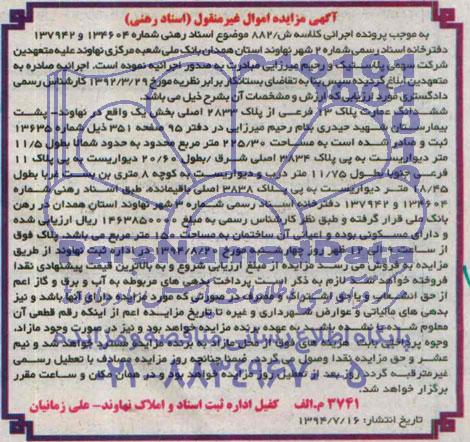 آگهی مزایده اموال غیرمنقول (اسناد رهنی)
به موجب پرونده اجرائی کلاسه ش/۸۸۲ موضوع اسناد رهنی شماره ۱۳۴۶۰۴ و ۱۳۷۹۴۲
دفترخانه اسناد رسمی شماره ۲ شهر نهاوند استان همدان بانک ملی شعبه مرکزی نهاوند علیه متعهدین
شرکت سهیل پلاستیک و رحیم میرزایی مبادرت به صدور اجرائیه نموده است. اجرائیه صادره به
متعهدین ابلاغ گردیده سپس بنا به تقاضای بستانکار برابر نظریه مورخ ۱۳۹۴/۳/۲۹ کارشناس رسمی
دادگستری مورد ارزیابی که ارزش و مشخصات آن بشرح ذیل می باشد.
ششدانگ عمارت پلاک ۱۳ فرعی از پلاک ۲۸۳۷ اصلی بخش یک واقع در نهاوند- پشت
بیمارستان شهید حیدری بنام رحیم میرزایی در دفتر ۹۵ صفحه ۳۵۱ ذیل شماره ۱۳۶۳۵
ثبت و صادر شده است به مساحت ۲۲۵/۳۰ متر مربع محدود به حدود شمالا بطول ۱۱/۵
متر دیواریست به پی پلاک ۳۸۳۶ اصلی شرقا بطول ۲۰/۶۰ دیواریست به پی پلاک ۱۱
فرعی جنوبا بطول ۱۱/۷۵ متر درب و دیواریست به کوچه ۸ متری بن بست غربا بطول
۱۸/۴۵ متر دیواریست به پی پلاک ۳۸۳۸ اصلی باقیمانده. طبق اسناد رهنی شماره
۱۳۴۶۰۴ و ۱۳۷۹۴۲ دفترخانه اسناد رسمی شماره ۲ شهر نهاوند استان همدان در رهن
بانک ملی قرار گرفته و طبق نظر کارشناس رسمی به مبلغ ۱۴۶۳۸۵۰۰۰۰ ریال ارزیابی شده
و دارای مسکونی بوده و اعیانی آن ساختمان به مساحت ۱۵۰ متر مربع می باشد. پلاک فوق
از ساعت ۹ الی ۱۲ ظهر روز چهارشنبه مورخ ۱۳۹۴/۸/۲۰ در اداره ثبت نهاوند از طریق
مزایده به فروش می رسد. مزایده از مبلغ ارزیابی شروع و به بالاترین قیمت پیشنهادی نقدا
فروخته خواهد شد. لازم به ذکر است پرداخت بدهی های مربوطه به آب و برق و گاز اعم
از حق انشعاب و یا حق اشتراک و مصرف در صورتی که مورد مزایده دارای آنها باشد و نیز
بدهی های مالیاتی و عوارض شهرداری و غیره تا تاریخ مزایده اعم از اینکه رقم قطعی آن
معلوم شده یا نشده باشد به عهده برنده مزایده خواهد بود و نیز در صورت وجود مازاد،
وجوه پرداختی بابت هزینه های فوق از محل مازاد به برنده مزایده مسترد خواهد شد و نیم
عشر و حق مزایده نقدا وصول می گردد. ضمنا چنانچه روز مزایده مصادف با تعطیل رسمی
غیرمترقبه گردد روز بعد از تعطیل روز مزایده خواهد بود و در همان مکان و ساعت مقرر
برگزار خواهد شد.
۳۷۴۱ م.الف کفیل اداره ثبت اسناد و املاک نهاوند- علی زمانیان
تاریخ انتشار: ۱۳۹۴/۷/۱۶
ParsNamadData
۰۲۱-۸۸۳۴۹۶۷۰-۵